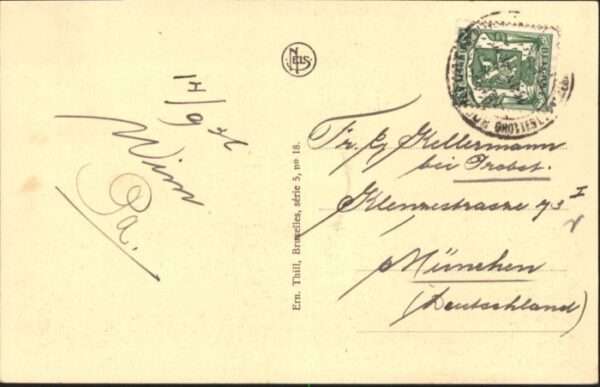 NELS
17/9 36
Wim
Pa.
Ern. Thill, Bruxelles, série 5, no 18.
Fr. Kellermann
bei Probst.
Klenzestrasse 73 I
München
(Deutschland)